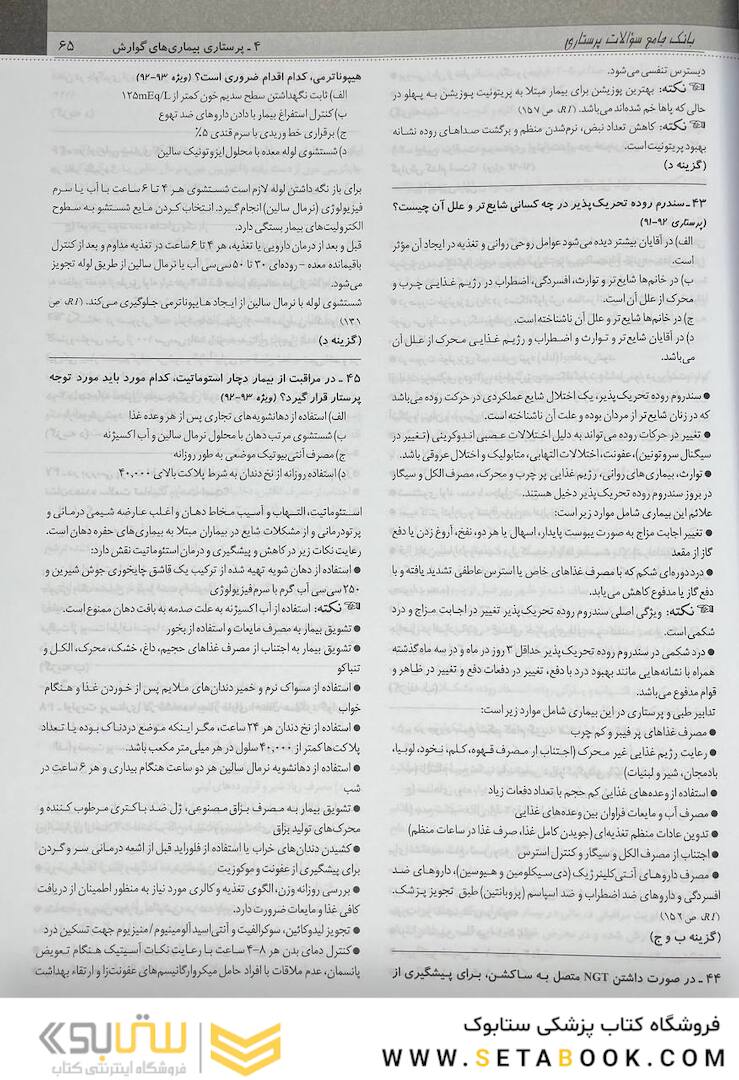 بانک جامع سؤالات پرستاری
۴ ـ پرستاری بیماری‌های گوارش
۶۵
دیسترس تنفسی می‌شود.
نکته: بهترین پوزیشن برای بیمار مبتلا به پریتونیت پوزیشن به پهلو در
حالی که پاها خم شده‌اند می‌باشد. (R1، ص ۱۵۷)
نکته: کاهش تعداد نبض، نرم‌شدن منظم و برگشت صداهای روده نشانه
بهبود پریتونیت است.
(گزینه د)
۴۳ـ سندرم روده تحریک‌پذیر در چه کسانی شایع‌تر و علل آن چیست؟
(پرستاری ۹۲-۹۱)
الف) در آقایان بیشتر دیده می‌شود عوامل روحی روانی و تغذیه در ایجاد آن مؤثر
است.
ب) در خانم‌ها شایع‌تر و توارث، افسردگی، اضطراب در رژیم غذایی چرب و
محرک از علل آن است.
ج) در خانم‌ها شایع‌تر و علل آن ناشناخته است.
د) در آقایان شایع‌تر و توارث و اضطراب و رژیم غذایی محرک از علل آن
می‌باشد.
● سندروم روده تحریک‌پذیر، یک اختلال شایع عملکردی در حرکت روده می‌باشد
که در زنان شایع‌تر از مردان بوده و علت آن ناشناخته است.
● تغییر در حرکات روده می‌تواند به دلیل اختلالات عصبی اندوکرینی (تغییر در
سیگنال سروتونین)، عفونت، اختلالات التهابی، متابولیک و اختلال عروقی باشد.
● توارث، بیماری‌های روانی، رژیم غذایی پر چرب و محرک، مصرف الکل و سیگار
در بروز سندروم روده تحریک‌پذیر دخیل هستند.
علائم این بیماری شامل موارد زیر است:
● تغییر اجابت مزاج به صورت یبوست پایدار، اسهال یا هر دو، نفخ، آروغ زدن یا دفع
گاز از مقعد
● درد دوره‌ای شکم که با مصرف غذاهای خاص یا استرس عاطفی تشدید یافته و با
دفع گاز یا مدفوع کاهش می‌یابد.
نکته: ویژگی اصلی سندروم روده تحریک‌پذیر تغییر در اجابت مزاج و درد
شکمی است.
● درد شکمی در سندروم روده تحریک‌پذیر حداقل ۳ روز در ماه و در سه ماه گذشته
همراه با نشانه‌هایی مانند بهبود درد با دفع، تغییر در دفعات دفع و تغییر در ظاهر و
قوام مدفوع می‌باشد.
تدابیر طبی و پرستاری در این بیماری شامل موارد زیر است:
● مصرف غذاهای پر فیبر و کم چرب
● رعایت رژیم غذایی غیر محرک (اجتناب از مصرف قهوه، کلم، نخود، لوبیا،
بادمجان، شیر و لبنیات)
● استفاده از وعده‌های غذایی کم حجم با تعداد دفعات زیاد
● مصرف آب و مایعات فراوان بین وعده‌های غذایی
● تدوین عادات منظم تغذیه‌ای (جویدن کامل غذا، صرف غذا در ساعات منظم)
● اجتناب از مصرف الکل و سیگار و کنترل استرس
● مصرف داروهای آنتی‌کلینرژیک (دی‌سیکلومین و هیوسین)، داروهای ضد
افسردگی و داروهای ضد اضطراب و ضد اسپاسم (پروبانتین) طبق تجویز پزشک.
(R1، ص ۱۵۲)
(گزینه ب و ج)
۴۴ ـ در صورت داشتن NGT متصل به ساکشن، برای پیشگیری از
هیپوناترمی، کدام اقدام ضروری است؟ (ویژه ۹۳-۹۲)
الف) ثابت نگهداشتن سطح سدیم خون کمتر از ۱۲۵mEq/L
ب) کنترل استفراغ بیمار با دادن داروهای ضد تهوع
ج) برقراری خط وریدی با سرم قندی ۵٪
د) شستشوی لوله معده با محلول ایزوتونیک سالین
برای باز نگه داشتن لوله لازم است شستشوی هر ۴ تا ۶ ساعت با آب یا سرم
فیزیولوژی (نرمال سالین) انجام گیرد. انتخاب کردن مایع شستشو به سطوح
الکترولیت‌های بیمار بستگی دارد.
قبل و بعد از درمان دارویی یا تغذیه، هر ۴ تا ۶ ساعت در تغذیه مداوم و بعد از کنترل
باقیمانده معده – روده‌ای ۳۰ تا ۵۰ سی‌سی آب یا نرمال سالین از طریق لوله تجویز
می‌شود.
شستشوی لوله با نرمال سالین از ایجاد هایپوناترمی جلوگیری می‌کند. (R1، ص
۱۳۱)
(گزینه د)
۴۵ ـ در مراقبت از بیمار دچار استوماتیت، کدام مورد باید مورد توجه
پرستار قرار گیرد؟ (ویژه ۹۳-۹۲)
الف) استفاده از دهانشویه‌های تجاری پس از هر وعده غذا
ب) شستشوی مرتب دهان با محلول نرمال سالین و آب اکسیژنه
ج) مصرف آنتی‌بیوتیک موضعی به طور روزانه
د) استفاده روزانه از نخ دندان به شرط پلاکت بالای ۴۰,۰۰۰
استئوماتیت، التهاب و آسیب مخاط دهان و اغلب عارضه شیمی درمانی و
پرتودرمانی و از مشکلات شایع در بیماران مبتلا به بیماری‌های حفره دهان است.
رعایت نکات زیر در کاهش و پیشگیری و درمان استئوماتیت نقش دارد:
● استفاده از دهان شویه تهیه شده از ترکیب یک قاشق چایخوری جوش شیرین و
۲۵۰ سی‌سی آب گرم با سرم فیزیولوژی
نکته: استفاده از آب اکسیژنه به علت صدمه به بافت دهان ممنوع است.
● تشویق بیمار به مصرف مایعات و استفاده از بخور
● تشویق بیمار به اجتناب از مصرف غذاهای حجیم، داغ، خشک، محرک، الکل و
تنباکو
● استفاده از مسواک نرم و خمیر دندان‌های ملایم پس از خوردن غذا و هنگام
خواب
● استفاده از نخ دندان هر ۲۴ ساعت، مگر اینکه موضع دردناک بوده یا تعداد
پلاکت‌ها کمتر از ۴۰,۰۰۰ سلول در هر میلی‌متر مکعب باشد.
● استفاده از دهانشویه نرمال سالین هر دو ساعت هنگام بیداری و هر ۶ ساعت در
شب
● تشویق بیمار به مصرف بزاق مصنوعی، ژل ضد باکتری مرطوب کننده و
محرک‌های تولید بزاق
● کشیدن دندان‌های خراب یا استفاده از فلوراید قبل از اشعه درمانی سر و گردن
برای پیشگیری از عفونت و موکوزیت
● بررسی روزانه وزن، الگوی تغذیه و کالری مورد نیاز به منظور اطمینان از دریافت
کافی غذا و مایعات ضرورت دارد.
● تجویز لیدوکائین، سوکرالفیت و آنتی‌اسید آلومینیوم / منیزیوم جهت تسکین درد
● کنترل دمای بدن هر ۸-۴ ساعت با رعایت نکات آسپتیک هنگام تعویض
پانسمان، عدم ملاقات با افراد حامل میکروارگانیسم‌های عفونت‌زا و ارتقاء بهداشت
فروشگاه کتاب پزشکی ستابوک
WWW.SETABOOK.COM
ستابوک
فروشگاه اینترنتی کتاب